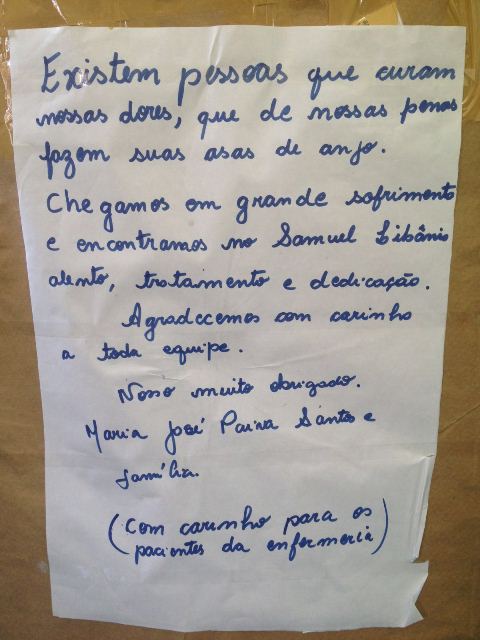 Existem pessoas que curam
nossas dores, que de nossas penas
fazem suas asas de anjo.
Chegamos em grande sofrimento
e encontramos no Samuel Libânio
alento, tratamento e dedicação.
Agradecemos com carinho
a toda equipe.
Nosso muito obrigado.
Maria José Paiva Santos e
família.
(Com carinho para os
pacientes da enfermeria)